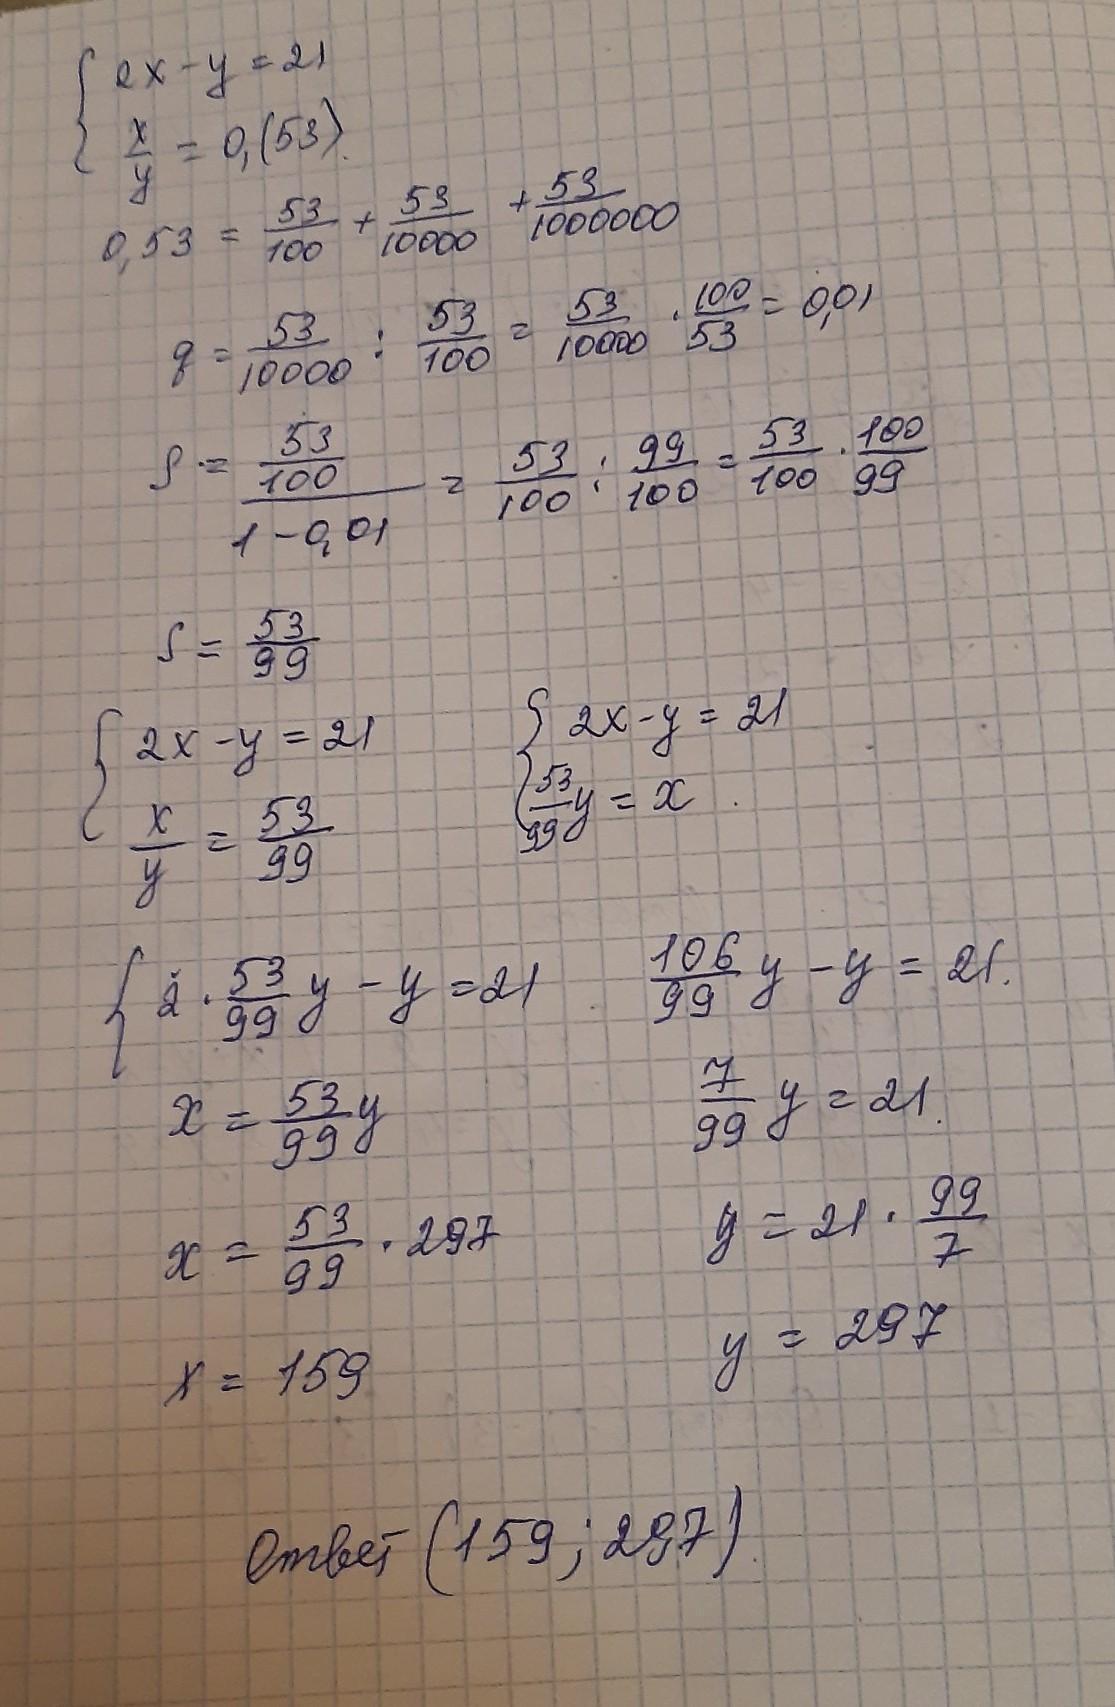 2x - y = 21
x/y = 0,(53).
0,53 = 53/100 + 53/10000 + 53/1000000
q = 53/10000 : 53/100 = 53/10000 · 100/53 = 0,01
S = 53/100 / 1 - 0,01 = 53/100 : 99/100 = 53/100 · 100/99
S = 53/99
2x - y = 21 2x - y = 21
x/y = 53/99 53/99 y = x .
2 · 53/99 y - y = 21 106/99 y - y = 21.
x = 53/99 y 7/99 y = 21.
x = 53/99 · 297 y = 21 · 99/7
x = 159 y = 297
Ответ (159; 297).